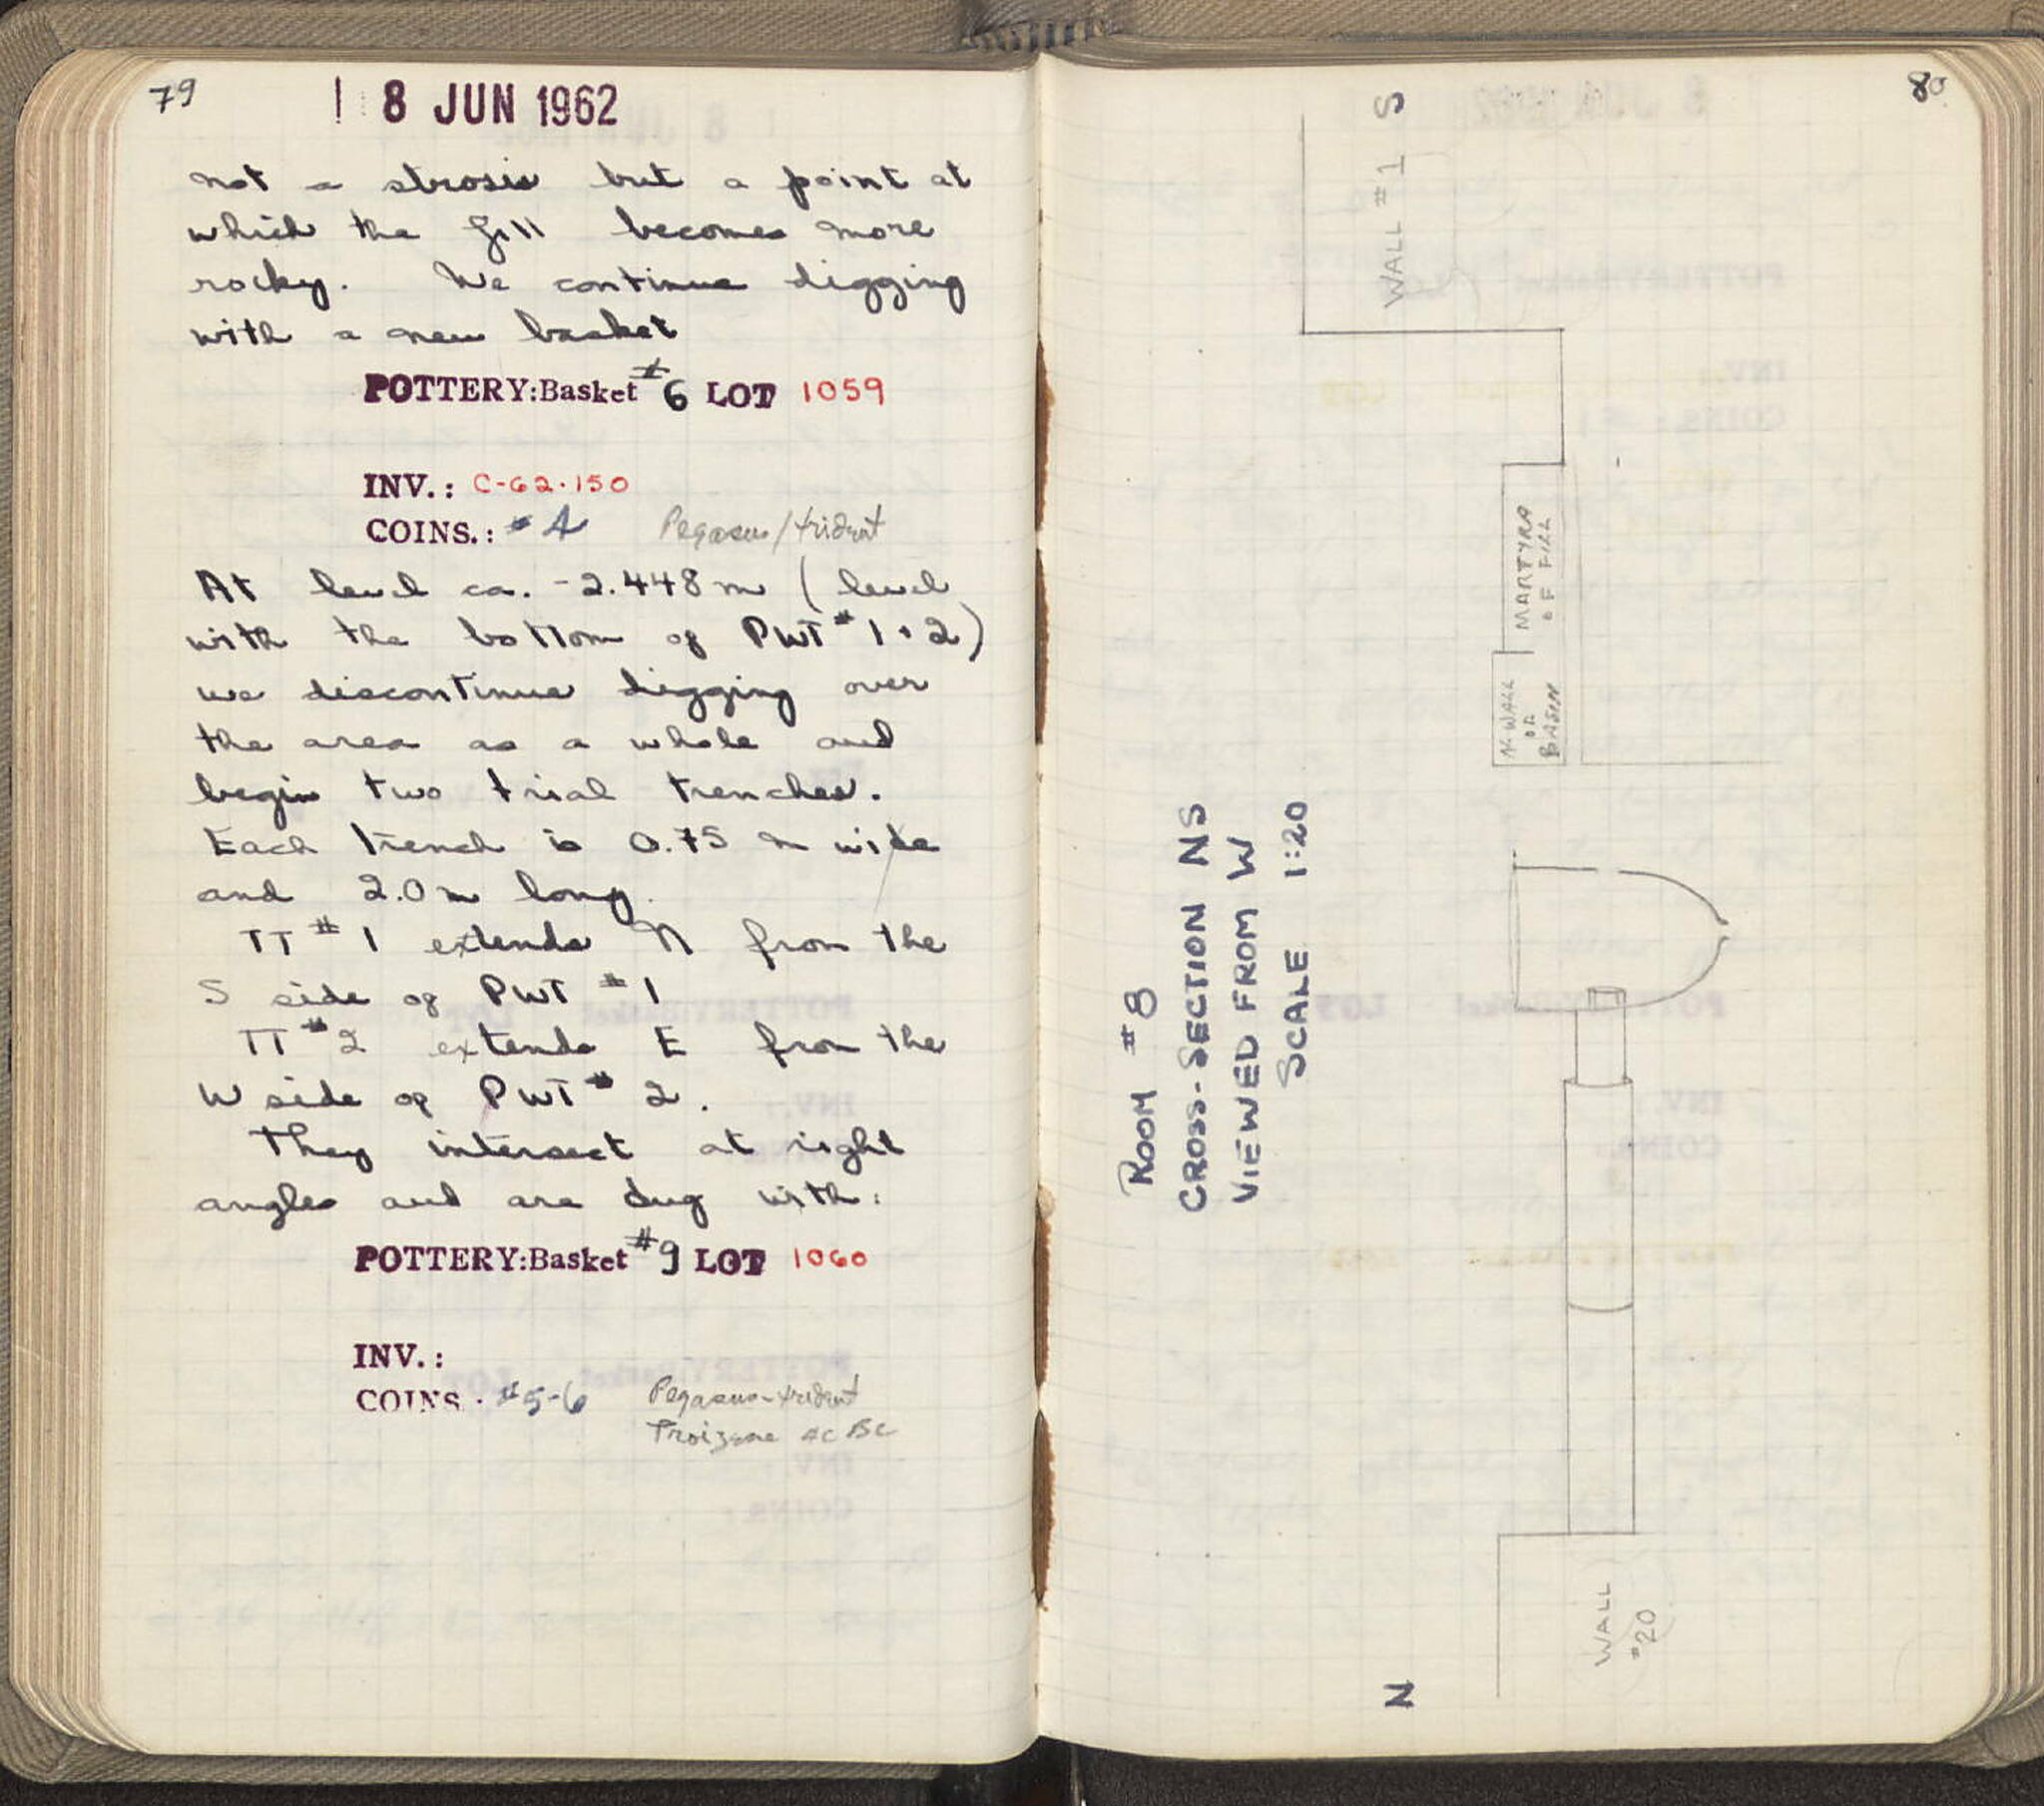 79
18 JUN 1962
not a strosis but a point at
which the fill becomes more
rocky. We continue digging
with a new basket
POTTERY:Basket #6 LOT 1059
INV.: C-62-150
COINS.: #4 Pegasus/trident
At level ca. -2.448 m (level
with the bottom of PWT #1+2)
we discontinue digging over
the area as a whole and
begin two trial trenches.
Each trench is 0.75 m wide
and 2.0 m long.
TT #1 extends N from the
S side of PWT #1
TT #2 extends E from the
W side of PWT #2.
They intersect at right
angles and are dug with:
POTTERY:Basket #9 LOT 1060
INV.:
COINS.: #5-6 Pegasus-trident
Troizene 4c BC
80
ROOM #8
CROSS-SECTION NS
VIEWED FROM W
SCALE 1:20
S
WALL #1
MARTYRA
OF FILL
N WALL
OF
BASIN
WALL
#20
N